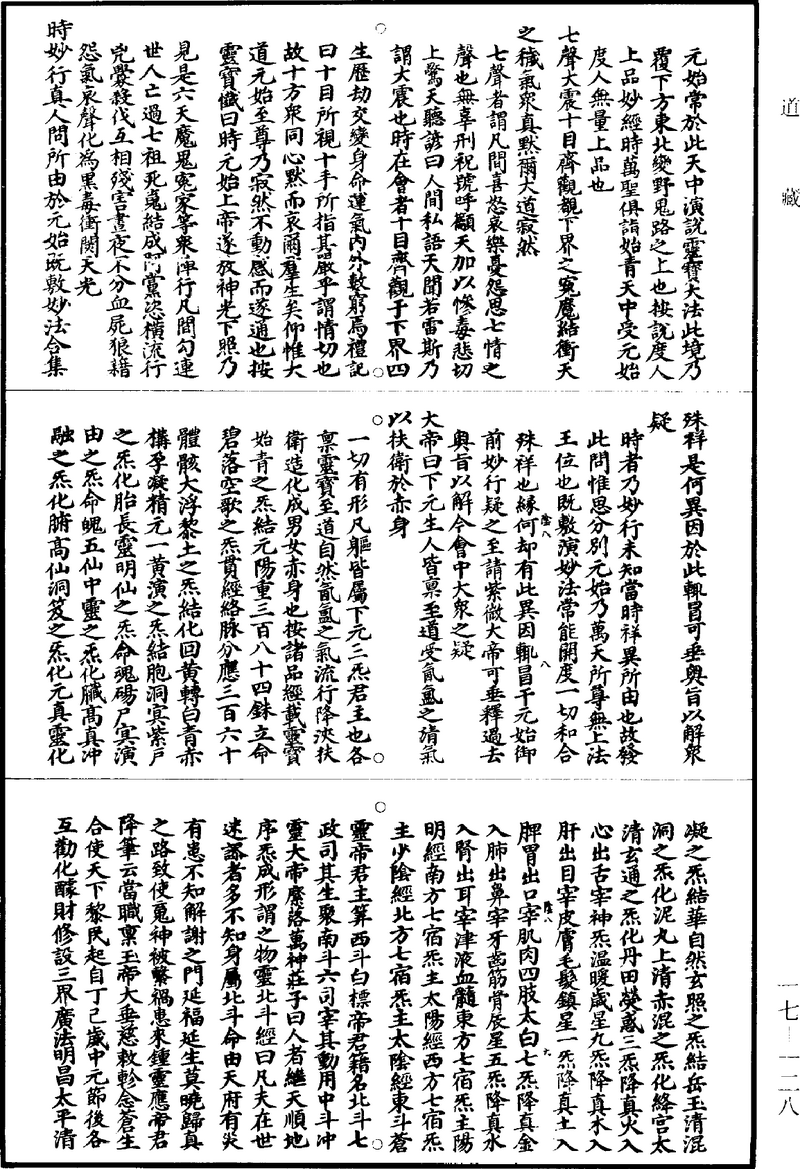 道藏
元始常於此天中演說靈寶大法此境乃
覆下方東北變野鬼路之上也按說度人
上品妙經時萬聖俱詣始青天中受元始
度人無量上品也
七聲大震十目齊觀覩下界之冤魔結衝天
之穢氣衆真默爾大道寂然
七聲者謂凡間喜怒哀樂憂怨思七情之
聲也無辜刑祝號呼顲天加以慘毒悲切
上驚天聽諺曰人間私語天聞若雷斯乃
謂大震也時在會者十目齊觀于下界四
生歷劫交變身命運氣內外數窮焉禮記
曰十目所視十手所指其嚴乎謂情切也
故十方衆同心默而哀爾羣生矣仰惟大
道元始至尊乃寂然不動感而遂通也按
靈寶懺曰時元始上帝遂放神光下照乃
見是六天魔鬼冤家等衆陣行凡間勾連
世人亡過七祖死冤結成門黨恣橫流行
兇釁殺伐互相殘害晝夜不分血屍狼籍
怨氣哀聲化為黑毒衝閡天光
時妙行真人問所由於元始既敷妙法合集
殊祥是何異因於此輒冒可垂奧旨以解衆
疑
時者乃妙行未知當時祥異所由也故發
此問惟思分別元始乃萬天所尊無上法
王位也既敷演妙法常能開度一切和合
殊祥也緣何却有此異因輒冒干元始御
前妙行疑之至請紫微大帝可垂釋過去
奧旨以解今會中大衆之疑
大帝曰下元生人皆禀至道受氤氳之猜氣
以扶衛於赤身
一切有形凡軀皆屬下元三炁君主也各
禀靈寶至道自然氤氳之氣流行降浹扶
衛造化成男女赤身也按諸品經載靈寶
始青之炁結元陽重三百八十四銖立命
碧落空歌之炁貫經絡脉分應三百六十
體骸大浮黎土之炁結化回黃轉白青赤
構孕凝精元一黃演之炁結胞洞㝠紫戶
之炁化胎長靈明仙之炁命魂碭尸㝠演
由之炁命魄五仙中靈之炁化臟高真冲
融之炁化腑高仙洞笈之炁化元真靈化
凝之炁結華自然玄照之炁結岳玉清混
洞之炁化泥丸上清赤混之炁化絳宮太
清玄通之炁化丹田熒惑三炁降真火入
心出舌宰神炁温暖歲星九炁降真木入
肝出目宰皮膚毛髮鎮星一炁降真土入
脾胃出口宰肌肉四肢太白七炁降真金
入肺出鼻宰牙齒筋骨辰星五炁降真水
入腎出耳宰津液血髓東方七宿炁主陽
明經南方七宿炁主太陽經西方七宿炁
主少陰經北方七宿炁主太陰經東斗蒼
靈帝君主筭西斗白標帝君籍名北斗七
政司其生聚南斗六司宰其動用中斗冲
靈大帝縻落萬神莊子曰人者繼天順地
序炁成形謂之物靈北斗經曰凡夫在世
迷謬者多不知身屬北斗命由天府有災
有患不知解謝之門延福延生莫曉歸真
之路致使冤神被繫禍患來鍾靈應帝君
降筆云當職禀玉帝大垂慈敕軫念蒼生
合使天下黎民起自丁巳歲中元節後各
互勸化醵財修設三界廣法明昌太平清
一七—一二八